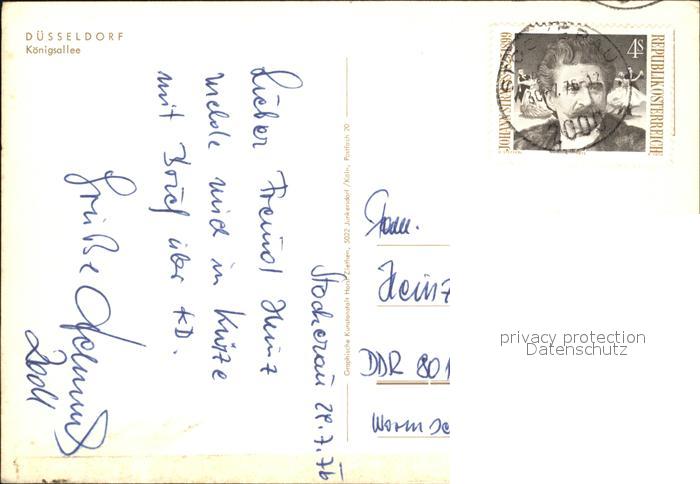 DÜSSELDORF
Königsallee
Stockerau 28.7.76
Lieber Freund Heinz
melde mich in Kürze
mit Brief über KD.
Grüße
Graphische Kunstanstalt Hans Ziethen, 5022 Junkersdorf/Köln, Postfach 20
REPUBLIK ÖSTERREICH
4S
2000
Heinz
DDR 801
privacy protection
Datenschutz